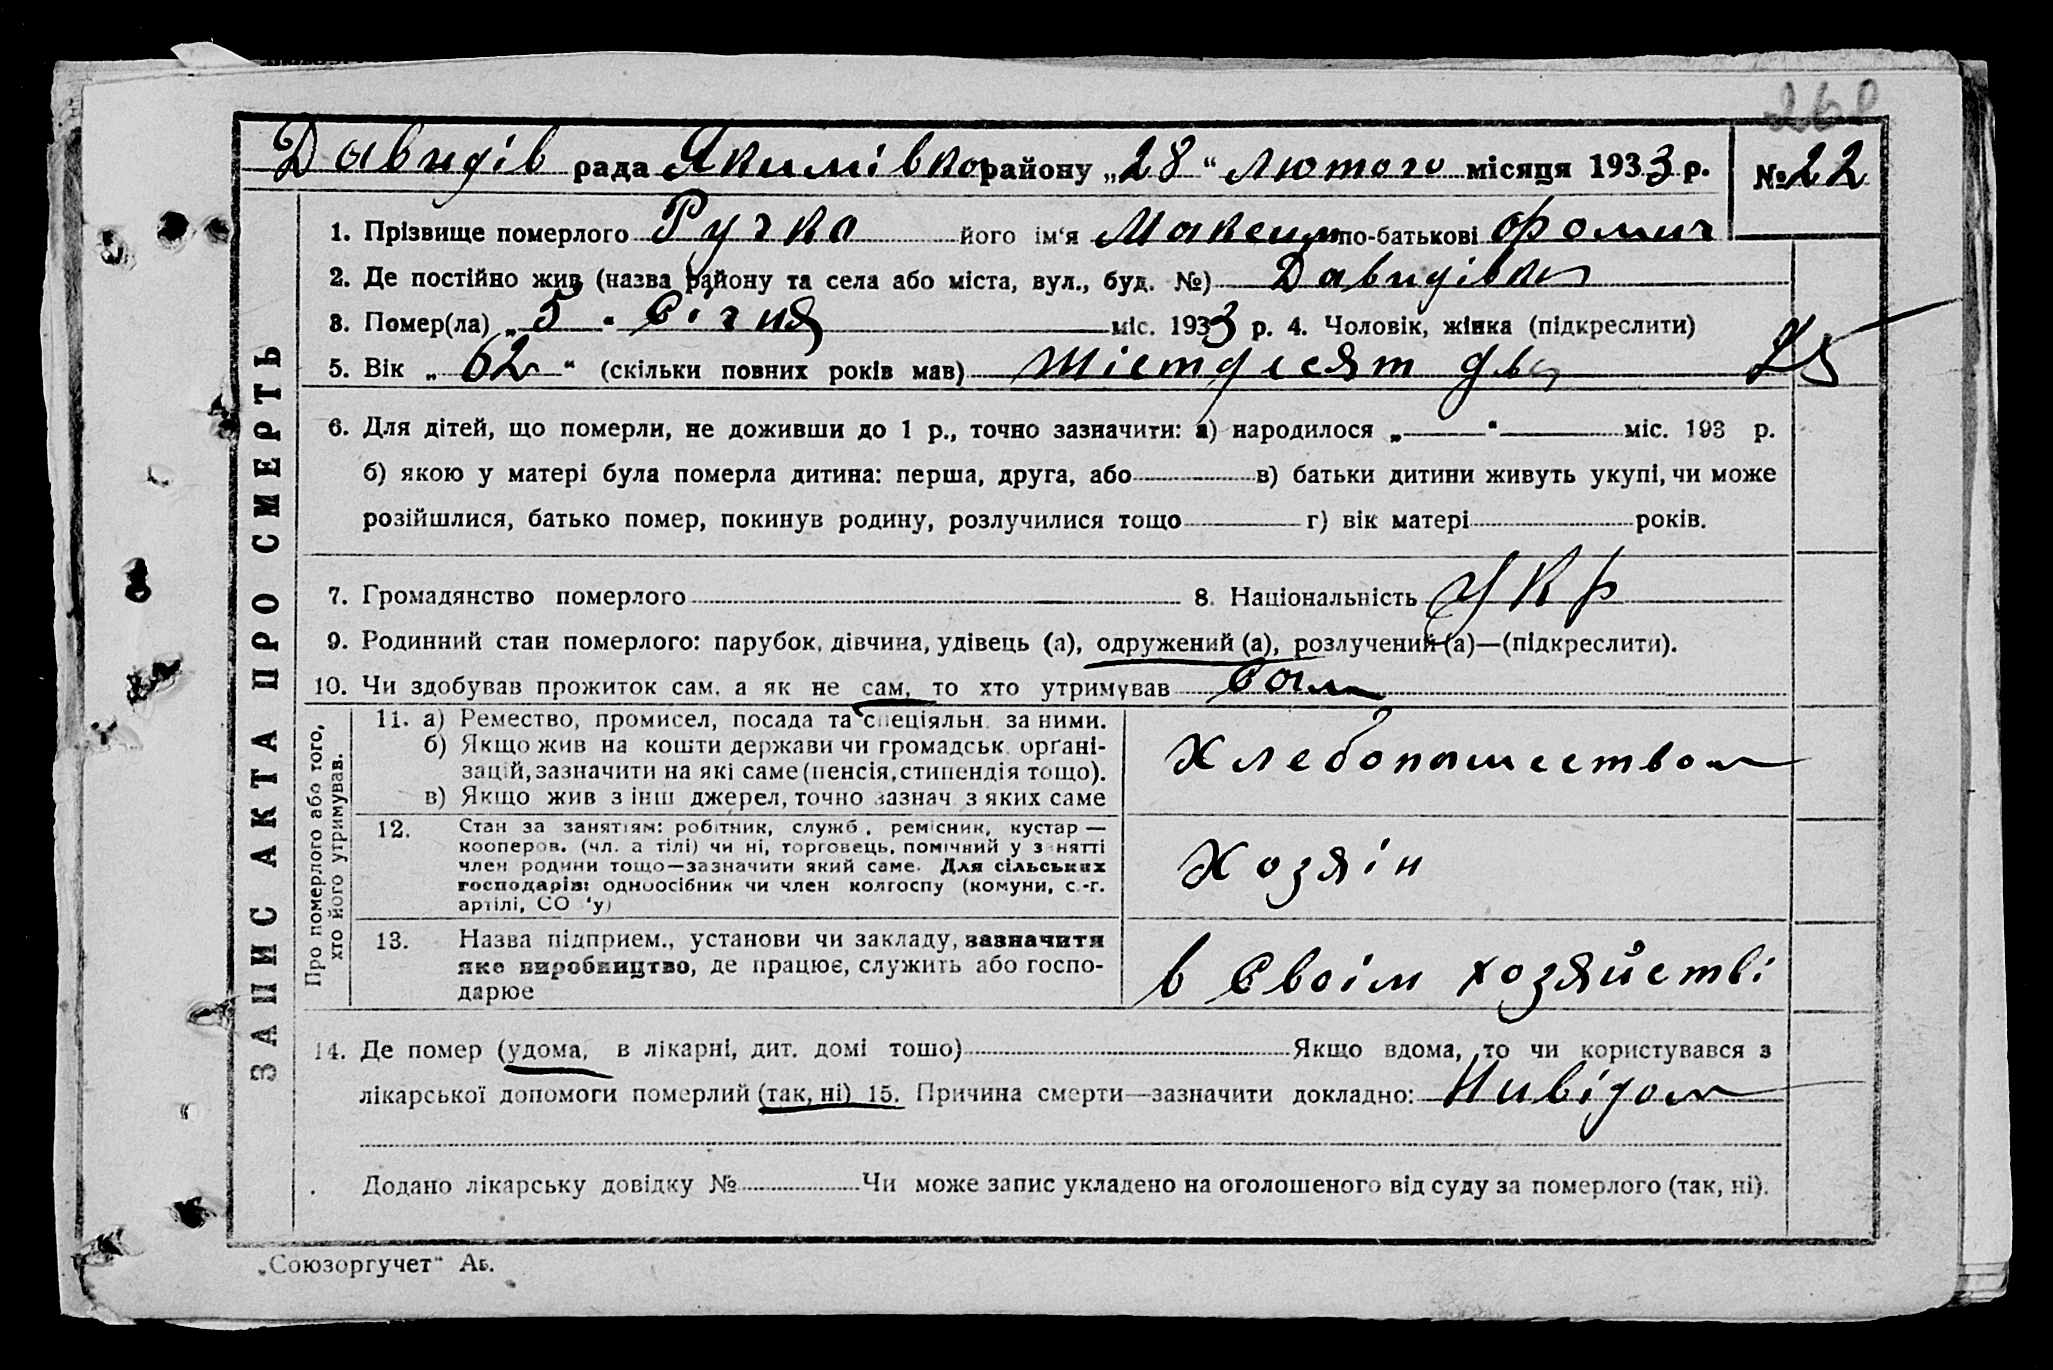 260
Давидів рада Якимівког району „28“ лютого місяця 1933 р. №22
1. Прізвище померлого Ручка його ім‘я Максим по-батькові Фомич
2. Де постійно жив (назва району та села або міста, вул., буд. №) Давидівка
3. Помер(ла) „5“ Січня міс. 1933 р. 4. Чоловік, жінка (підкреслити)
5. Вік „62“ (скільки повних років мав) Шістдесят два
6. Для дітей, що померли, не доживши до 1 р., точно зазначити: а) народилося „——“ —— міс. 193 р.
б) якою у матері була померла дитина: перша, друга, або в) батьки дитини живуть укупі, чи може
розійшлися, батько помер, покинув родину, розлучилися тощо г) вік матері років.
7. Громадянство померлого 8. Національність Укр
9. Родинний стан померлого: парубок, дівчина, удівець (а), одружений (а), розлучений (а)—(підкреслити).
10. Чи здобував прожиток сам, а як не сам, то хто утримував Сам
ЗАПИС АКТА ПРО СМЕРТЬ
Про померлого або того, хто його утримував.
11. а) Ремество, промисел, посада та спеціяльн. за ними.
б) Якщо жив на кошти держави чи громадськ. органі-
зацій, зазначити на які саме (пенсія, стипендія тощо).
в) Якщо жив з інш джерел, точно зазнач. з яких саме
Хлебопашеством
12. Стан за заняттям: робітник, служб., ремісник, кустар—
кооперов. (чл. артілі) чи ні, торговець, помічний у занятті
член родини тощо—зазначити який саме. Для сільських
господарів: одноосібник чи член колгоспу (комуни, с.-г.
артілі, СО 'у)
Хозяін
13. Назва підприєм., установи чи закладу, зазначити
яке виробництво, де працює, служить або госпо-
дарює
в Своім хозяйстві
14. Де помер (удома, в лікарні, дит. домі тощо) Якщо вдома, то чи користувався з
лікарської допомоги померлий (так, ні) 15. Причина смерти—зазначити докладно: Нивідом
Додано лікарську довідку № Чи може запис укладено на оголошеного від суду за померлого (так, ні).
„Союзоргучет“ Ав.